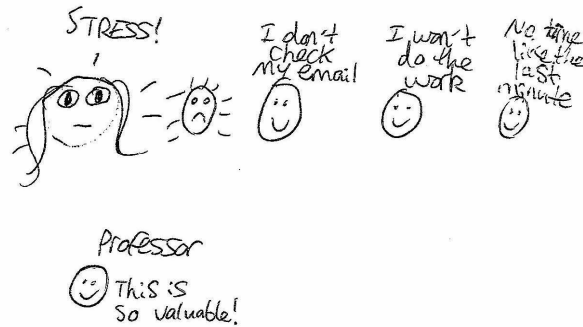 STRESS!
I don't
check
my email
I won't
do the
work
No time
like the
last
minute
Professor
This is
so valuable!